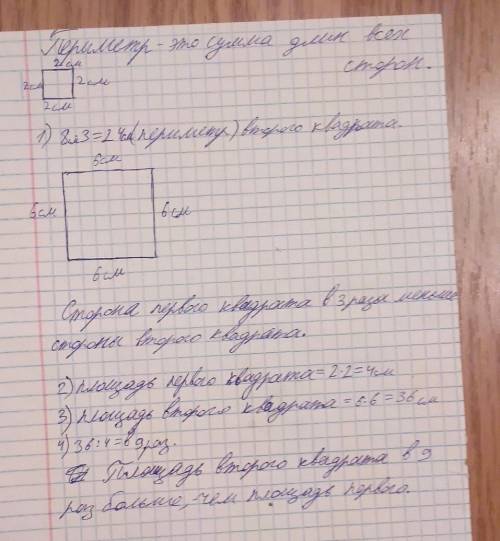 Периметр - это сумма длин всех
сторон.
2см
2см 2см
2см
1) 8·3=24см(периметр) второго квадрата.
6см
6см 6см
6см
Сторона первого квадрата в 3 раза меньше
стороны второго квадрата.
2) площадь первого квадрата = 2·2=4см
3) площадь второго квадрата = 6·6=36см
4) 36:4=в 9раз.
Площадь второго квадрата в 9
раз больше, чем площадь первого.